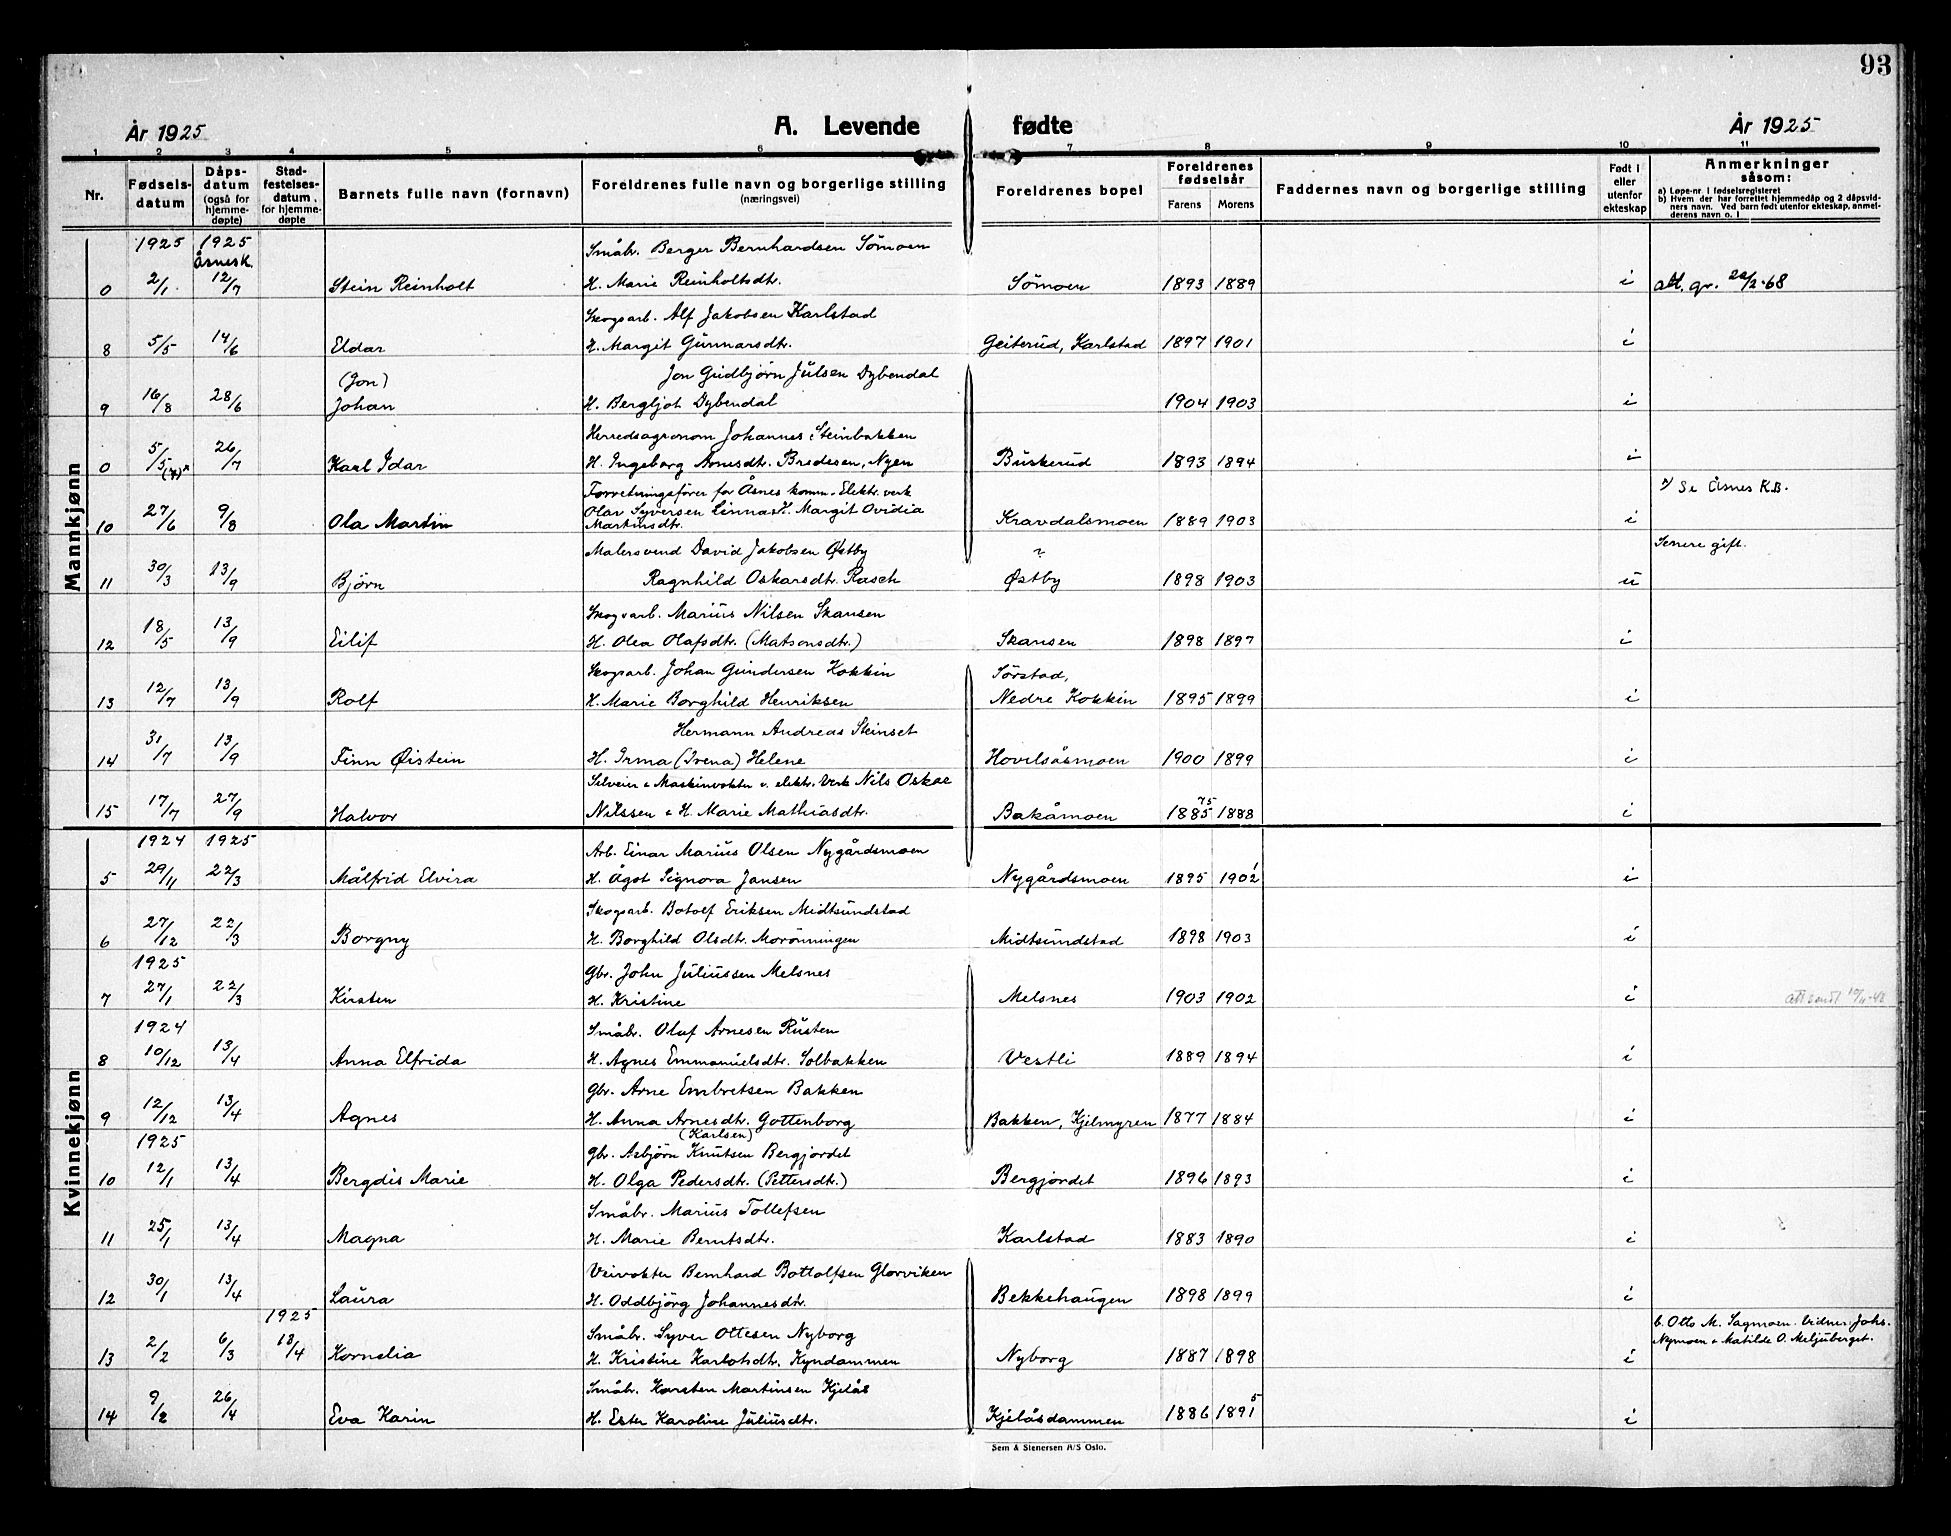 93
År 1925 A. Levende fødte År 1925
1 2 3 4 5 6 7 8 9 10 11
Nr. Fødsels-datum Dåps-datum (også for hjemme-døpte) Stad-festelses-datum for hjemme-døpte Barnets fulle navn (fornavn) Foreldrenes fulle navn og borgerlige stilling (næringsvei) Foreldrenes bopel Foreldrenes fødselsår Farens Morens Faddernes navn og borgerlige stilling Født i eller utenfor ekteskap Anmerkninger såsom:
a) Løpe-nr. i fødselsregisteret
b) Hvem der har forrettet hjemmedåp og 2 dåpsvid-
ners navn. Ved barn født utenfor ekteskap, anmel-
derens navn o. l
Mannkjønn
1925 1925 Småbr. Berger Bernhardsen Sömoen
Åsnes K.
0 2/1 12/7 Stein Reinholt H. Marie Reinholtsdtr. Sömoen 1893 1889 i att. gr. 22/2-68
Skogsarb. Alf Jakobsen Karlstad
8 5/5 14/6 Eldar H. Margit Gunnarsdtr. Geiterud, Karlstad 1897 1901 i
(Jon) Jon Gudbjörn Julsen Dybendal
9 16/8 28/6 Johan H. Bergljot Dybendal 1904 1903 i
Herredsagronom Johannes Steinbakken
0 5/5 (4)x 26/7 Karl Idar H. Ingeborg Arnesdtr. Bredesen, Nyen Buskerud 1893 1894 i
Forretningsfører for Åsnes komm. Elektr. verk x/ Se Åsnes K.B.
10 27/6 9/8 Ola Martin Olav Syversen Linnas H. Margit Ovidia Kravdalsmoen 1889 1903 i
Martinsdtr.
Malersvend David Jakobsen Østby ? Senere gift.
11 30/3 13/9 Björn Ragnhild Oskarsdtr. Rasch Østby 1898 1903 u
Skogsarb. Marius Nilsen Skansen
12 18/5 13/9 Eilif H. Olea Olafsdtr. (Matsonsdtr.) Skansen 1898 1897 i
Skogsarb. Johan Gundersen Kokkin Sörstad,
13 12/7 13/9 Rolf H. Marie Borghild Henriksen Nedre Kokkin 1895 1899 i
Hermann Andreas Steinset
14 31/7 13/9 Finn Øistein H. Irma (Irena) Helene Hovelsåsmoen 1900 1899 i
Selveier & Maskinvokter v. elektr. Verk Nils Oskar
15 17/7 27/9 Halvor Nilssen & H. Marie Mathiasdtr. Bakåmoen 1885 75 1888 i
Kvinnekjønn
1924 1925 Arb. Einar Marius Olsen Nygårdsmoen
5 29/11 22/3 Målfrid Elvira H. Ågot Signora Jansen Nygårdsmoen 1895 1902 1 i
Skogsarb. Botolf Eriksen Midtsundstad
6 27/12 22/3 Borgny H. Borghild Olsdtr. Morönningen Midtsundstad 1898 1903 i
1925 Gbr. John Juliussen Melsnes
7 27/1 22/3 Kirsten H. Kristine Melsnes 1903 1902 i att sendt 10/11-42
1924 Småbr. Oluf Arnesen Rusten
8 10/12 13/4 Anna Elfrida H. Agnes Emmanuelsdtr. Solbakken Vestli 1889 1894 i
Gbr. Arne Embretsen Bakken
9 12/12 13/4 Agnes H. Anna Arnesdtr. Gottenborg Bakken, Kjelmyren 1877 1884 i
(Karlsen)
1925 Gbr. Asbjörn Knutsen Bergjordet
10 12/1 13/4 Bergdis Marie H. Olga Pedersdtr. (Pettersdtr.) Bergjordet 1896 1893 i
Småbr. Marius Tollefsen
11 25/1 13/4 Magna H. Marie Berntsdtr. Karlstad 1883 1890 i
Veivokter Bernhard Bottolfsen Glorviken
12 30/1 13/4 Laura H. Oddbjörg Johannesdtr. Bekkehaugen 1898 1899 i
1925 Småbr. Syver Ottesen Nyborg b. Otto M. Sagmoen. Vidner: Johs.
13 2/2 6/3 13/4 Kornelia H. Kristine Karlotsdtr. Kyndammen Nyborg 1887 1898 i Nymoen & Matilde O. Meljuberget.
Småbr. Karsten Martinsen Kjelås
14 9/2 26/4 Eva Karin H. Ester Karoline Juliusdtr. Kjelåsdammen 1886 1891 5 i
Sem & Stenersen A/S Oslo.